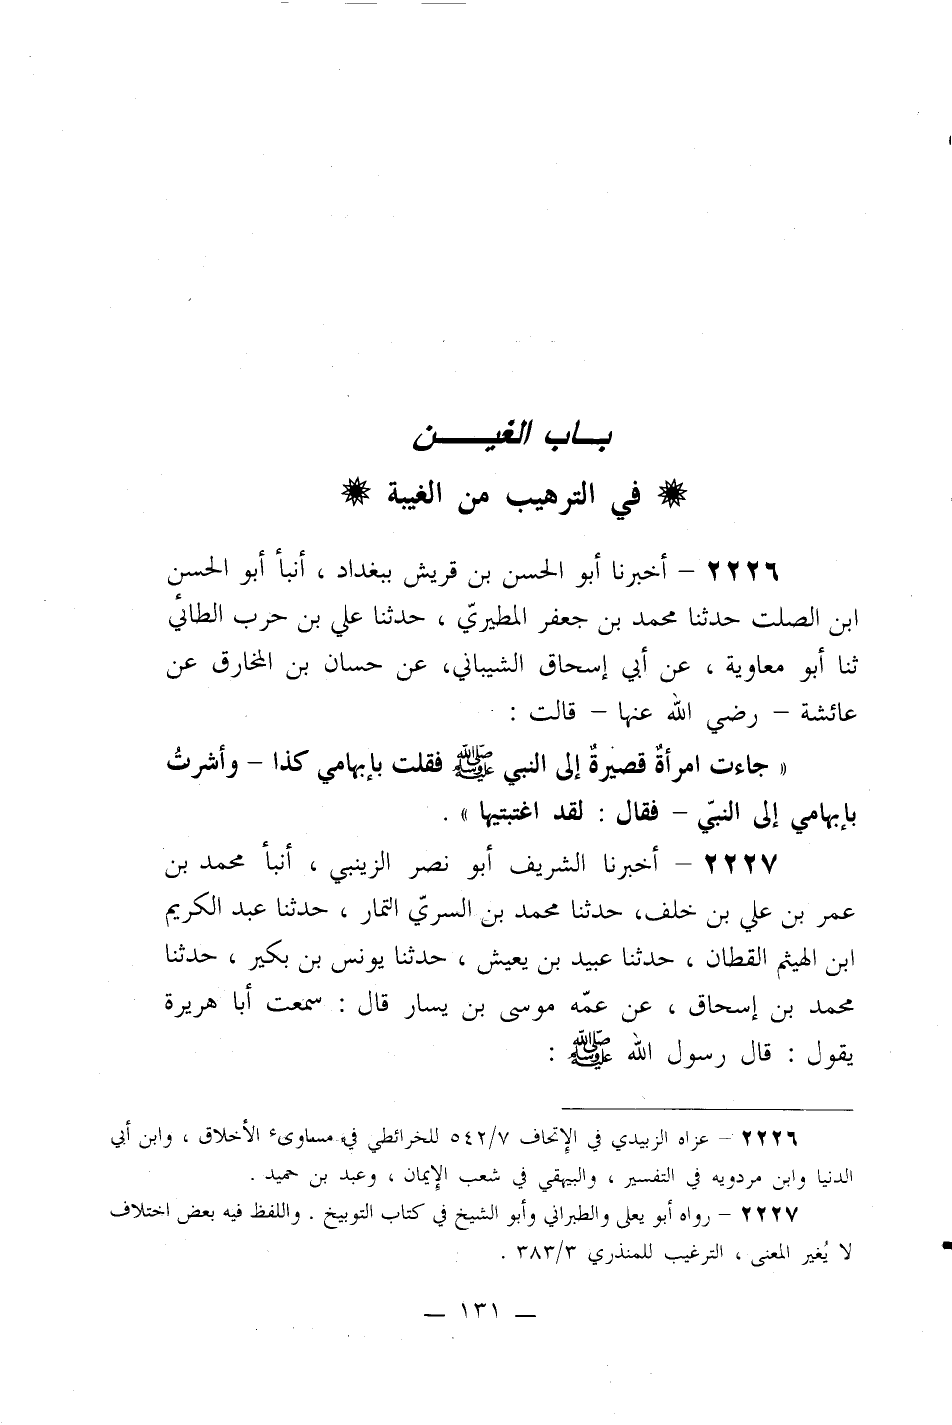 بـــاب الغيـــــن
في الترهيب من الغيبة
٢٢٢٦ – أخبرنا أبو الحسن بن قريش ببغداد ، أنبأ أبو الحسن
ابن الصلت حدثنا محمد بن جعفر المطيريّ ، حدثنا علي بن حرب الطائي
ثنا أبو معاوية ، عن أبي إسحاق الشيباني، عن حسان بن المخارق عن
عائشة – رضي الله عنها – قالت :
« جاءت امرأةٌ قصيرةٌ إلى النبي ﷺ فقلت بإبهامي كذا – وأشرتُ
بإبهامي إلى النبيّ – فقال : لقد اغتبتيها » .
٢٢٢٧ – أخبرنا الشريف أبو نصر الزينبي ، أنبأ محمد بن
عمر بن علي بن خلف، حدثنا محمد بن السريّ التمار ، حدثنا عبد الكريم
ابن الهيثم القطان ، حدثنا عبيد بن يعيش ، حدثنا يونس بن بكير ، حدثنا
محمد بن إسحاق ، عن عمّه موسى بن يسار قال : سمعت أبا هريرة
يقول : قال رسول الله ﷺ :
٢٢٢٦ – عزاه الزبيدي في الإتحاف ٥٤٢/٧ للخرائطي في مساوىء الأخلاق ، وابن أبي
الدنيا وابن مردويه في التفسير ، والبيهقي في شعب الإيمان ، وعبد بن حميد .
٢٢٢٧ – رواه أبو يعلى والطبراني وأبو الشيخ في كتاب التوبيخ . واللفظ فيه بعض اختلاف
لا يُغير المعنى ، الترغيب للمنذري ٣٨٣/٣ .
– ١٣١ –